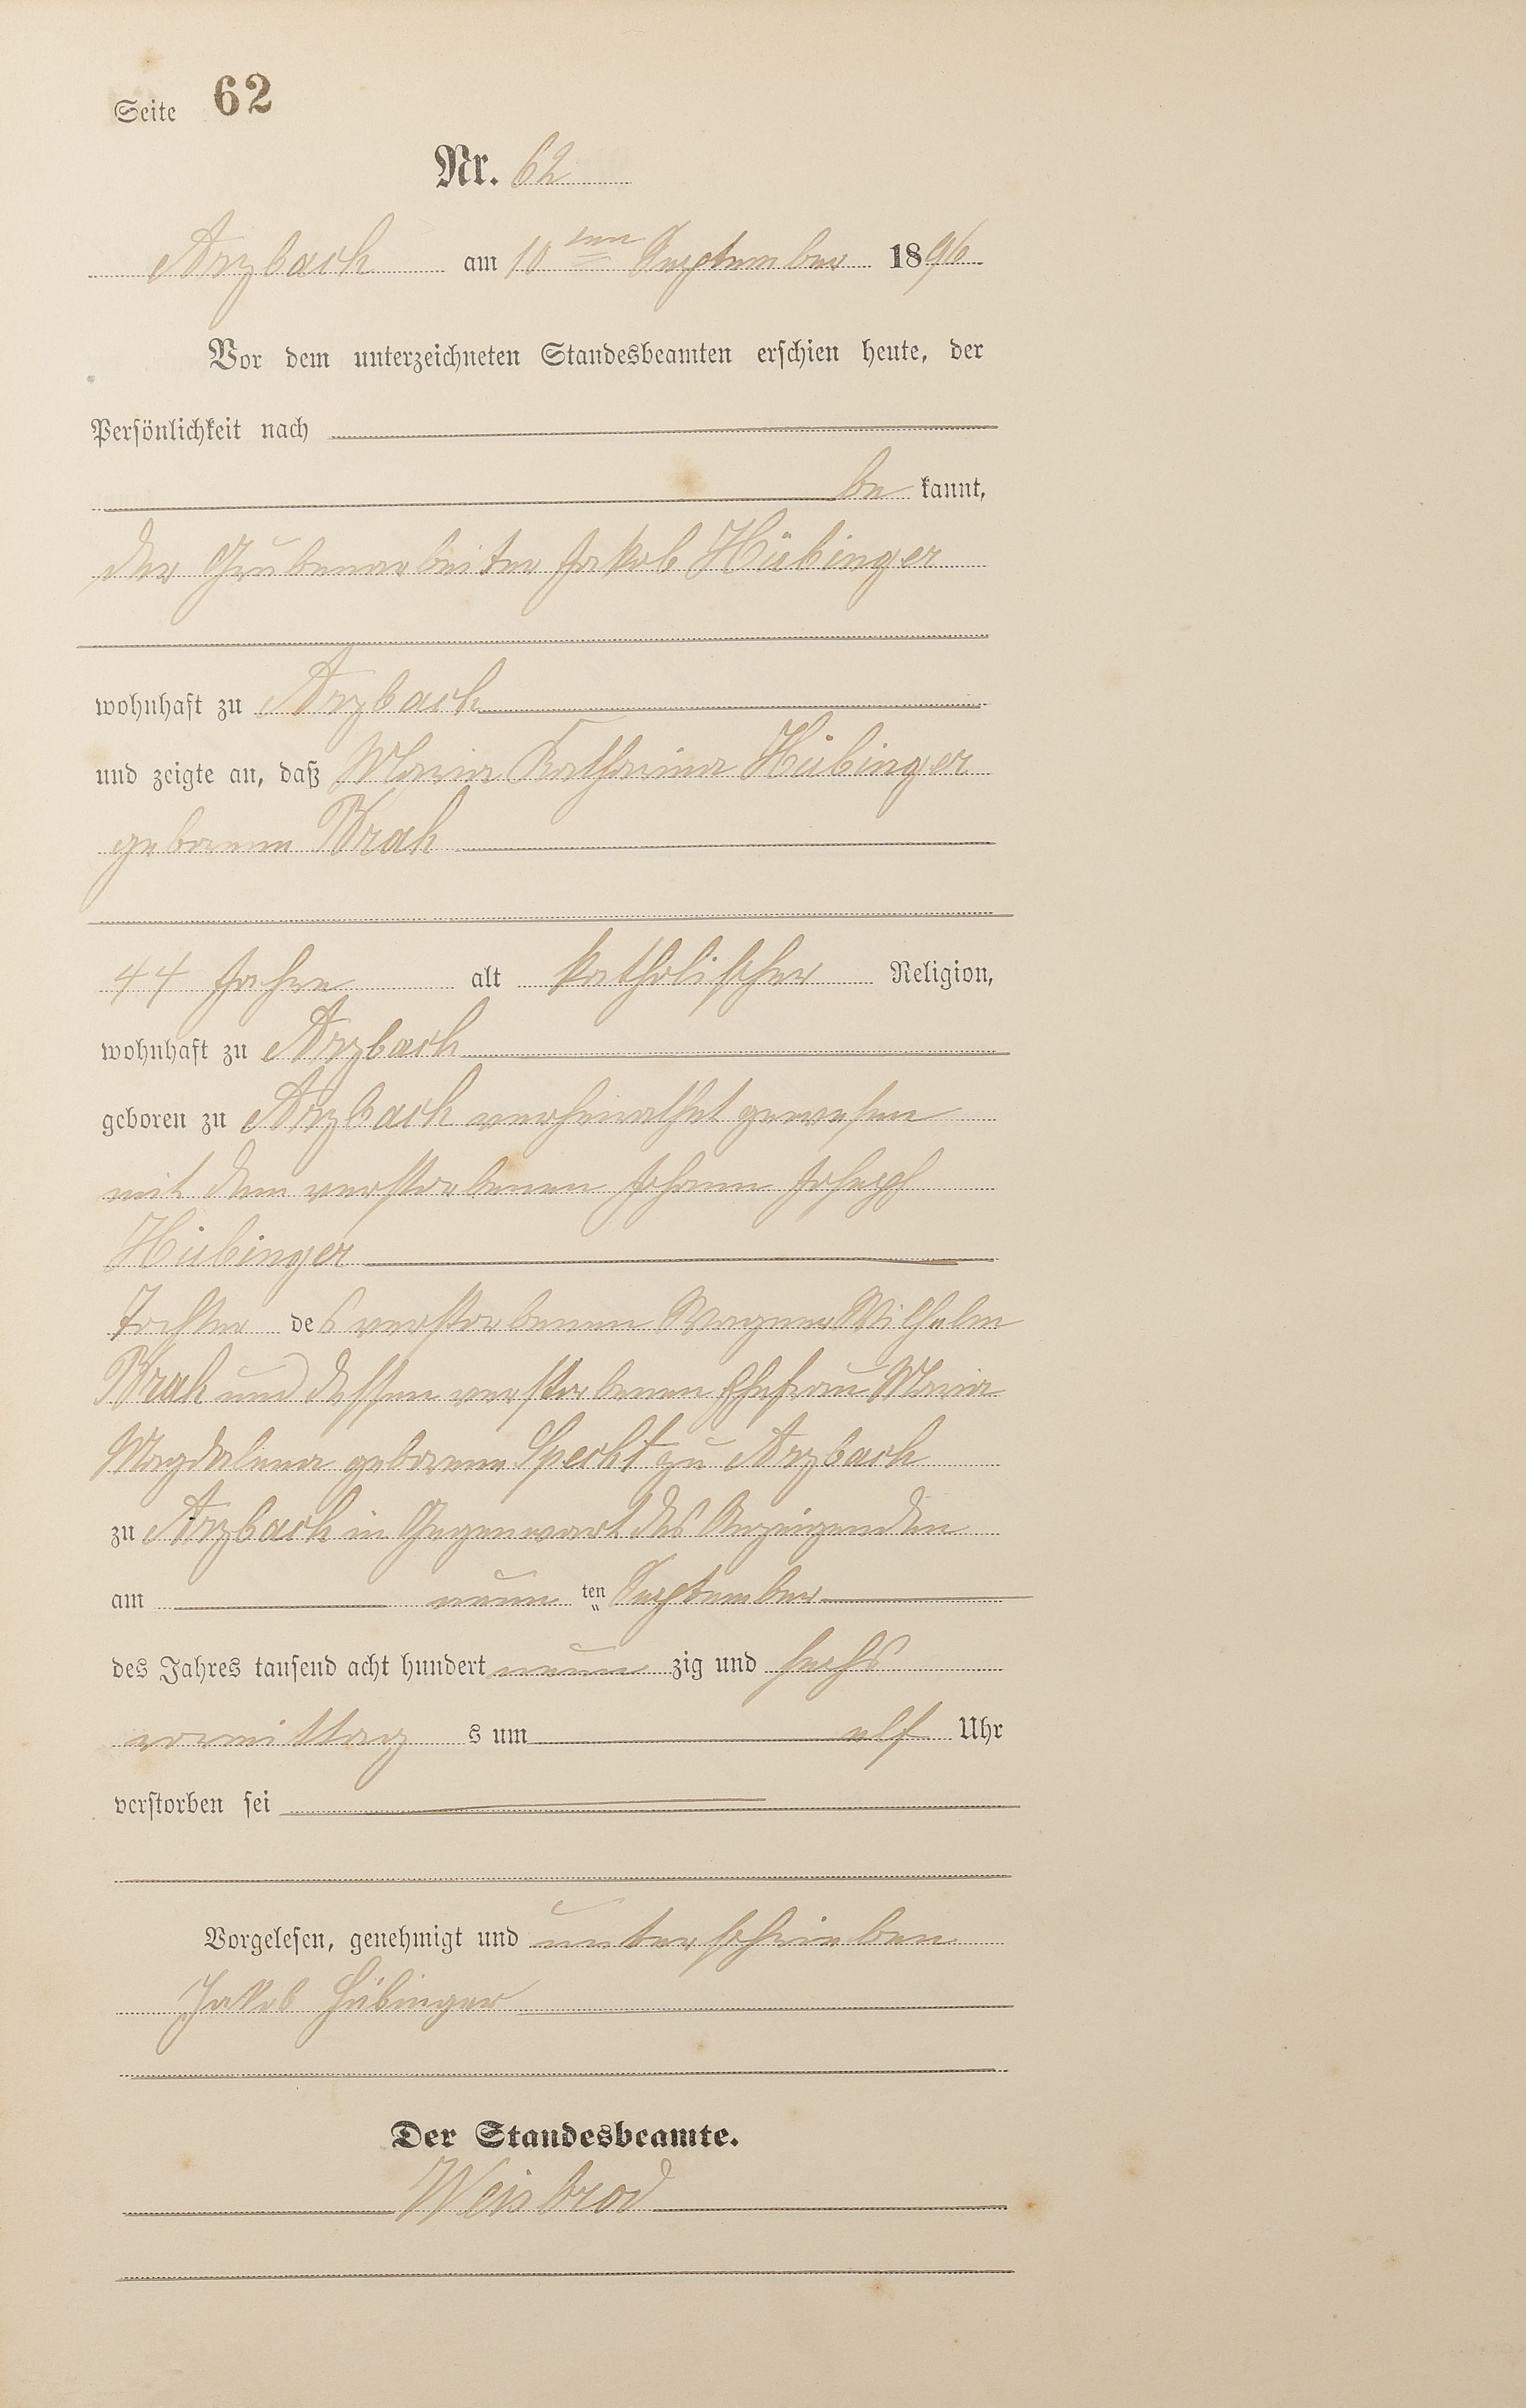 Seite 62
Nr. 62
Arzbach am 10ten September 1896
Vor dem unterzeichneten Standesbeamten erschien heute, der
Persönlichkeit nach
be kannt,
der Grubenarbeiter Jakob Hübinger
wohnhaft zu Arzbach
und zeigte an, daß Maria Katharina Hübinger
geborene Brah
44 Jahre alt katholischer Religion,
wohnhaft zu Arzbach
geboren zu Arzbach verheirathet gewesen
mit dem verstorbenen Johann Joseph
Hübinger
Tochter des verstorbenen Wagner Wilhelm
Brah und dessen verstorbenen Ehefrau Maria
Magdalena geborene Specht zu Arzbach
zu Arzbach in Gegenwart des Anzeigenden
am neun ten September
des Jahres tausend acht hundert neun zig und sechs
vormittag s um elf Uhr
verstorben sei
Vorgelesen, genehmigt und unterschrieben
Jakob Hübinger
Der Standesbeamte.
Weisbrod